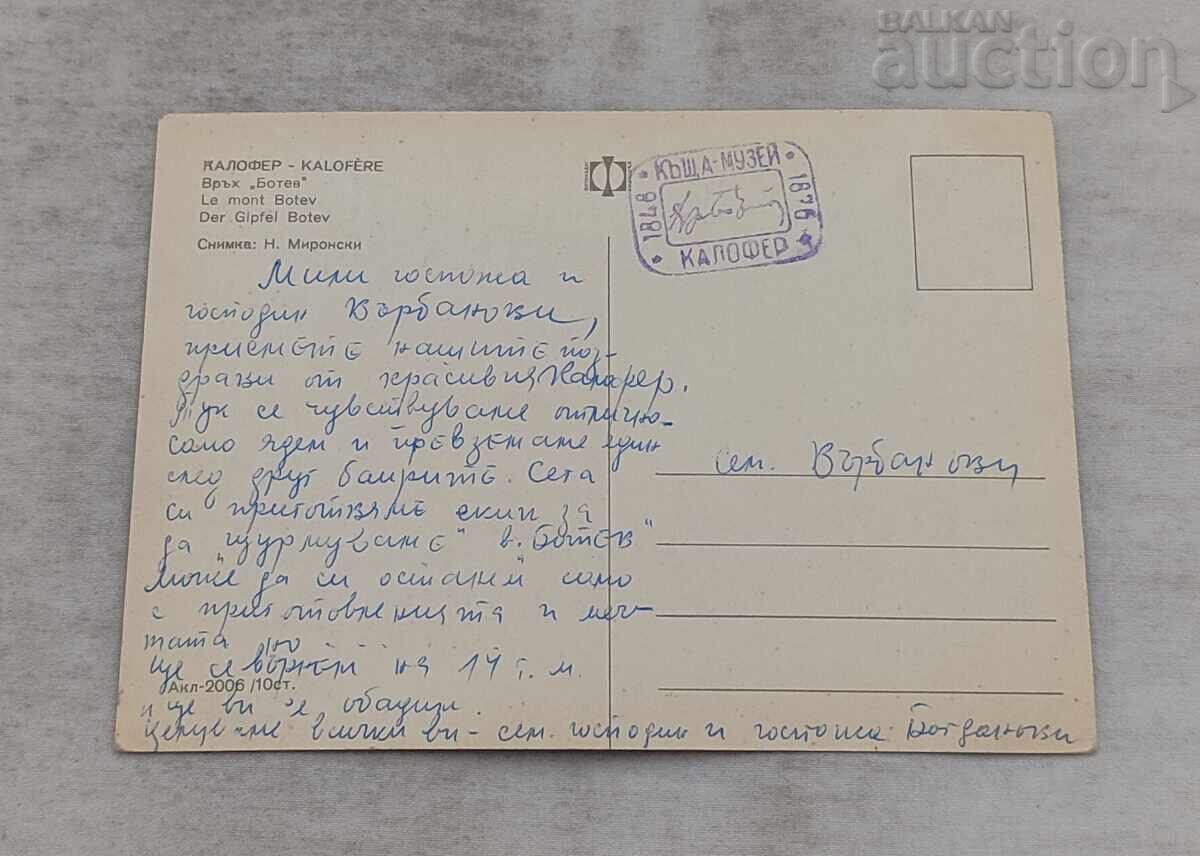 BALKAN
auction
КАЛОФЕР – KALOFÈRE
Връх „Ботев“
Le mont Botev
Der Gipfel Botev
Снимка: Н. Миронски
КЪЩА-МУЗЕЙ
1848
1876
КАЛОФЕР
Мили госпожа и
господин Върбанови,
приемете нашите поз-
драви от красивия Калофер.
Тук се чувствуваме отлично–
само ядем и превземаме един
след друг баирите. Сега
си приготвяме екип за
да „щурмуваме“ в. „Ботев“
Може да си останем само
с приготовленията и меч-
тата, но
ще се върнем на 14 т. м.
Акл-2006/10ст.
и ще ви се обадим.
Целуваме всички ви – сем. господин и госпожа Богданови
сем. Върбанови